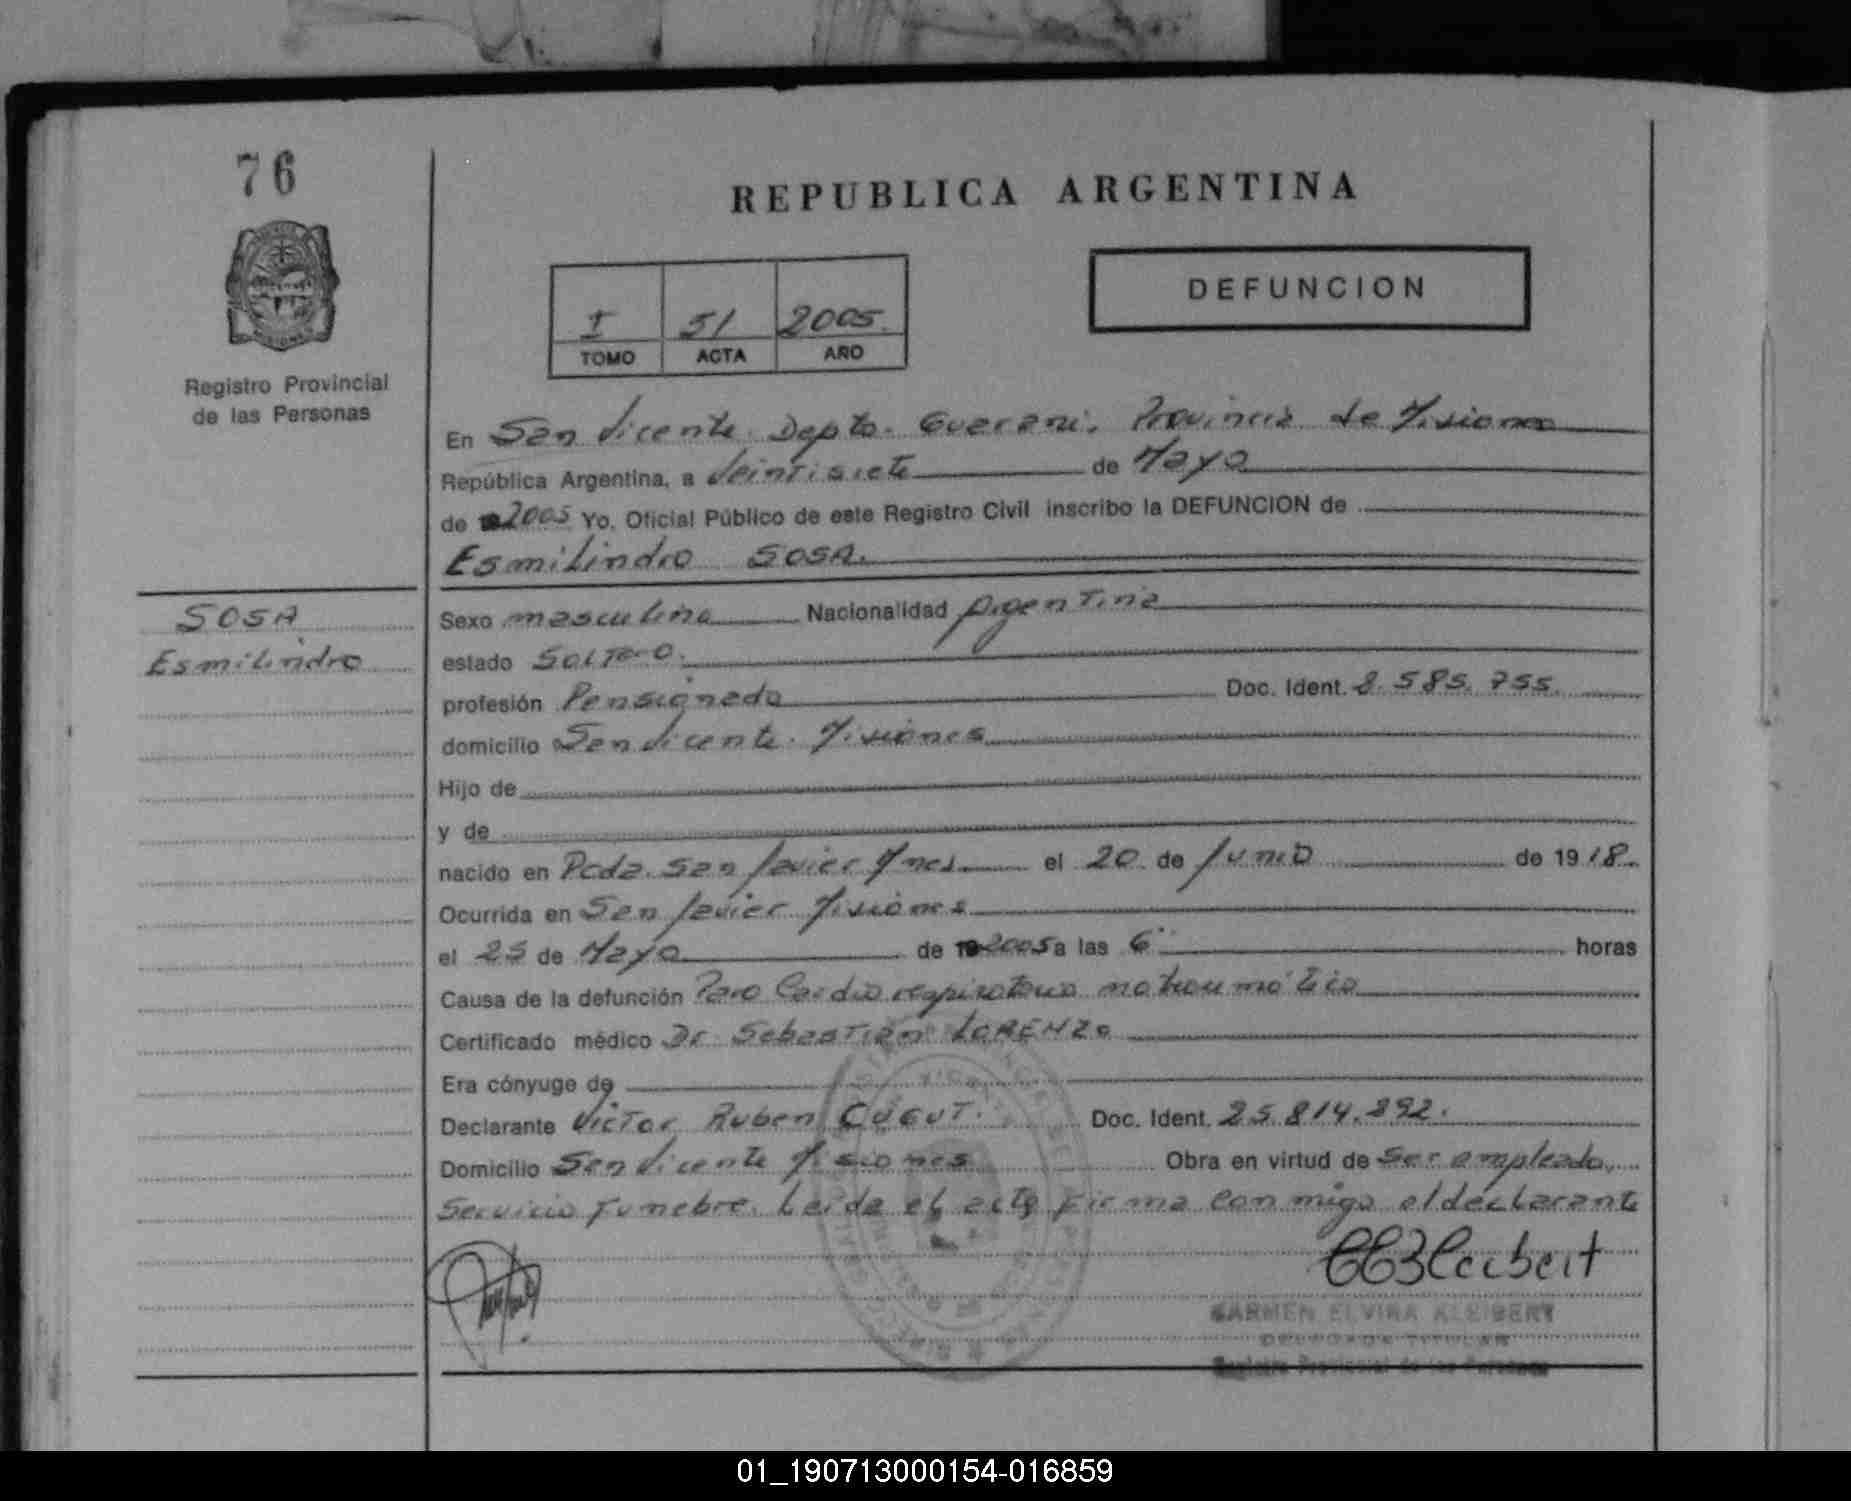 76
REPUBLICA ARGENTINA
DEFUNCION
I 51 2005.
TOMO ACTA AÑO
Registro Provincial
de las Personas
En San Vicente. Depto. Guarani. Provincia de Misiones
República Argentina, a Veintisiete de Mayo
de 2005 Yo, Oficial Público de este Registro Civil inscribo la DEFUNCION de
Esmilindro SOSA.
SOSA
Esmilindro
Sexo masculino Nacionalidad Argentina
estado Soltero.
profesión Pensionado Doc. Ident. 8.585.755.
domicilio San Vicente. Misiones
Hijo de
y de
nacido en Pcda. San Javier Mnes el 20 de Junio de 1918.
Ocurrida en San Javier Misiones
el 25 de Mayo de 2005 a las 6 horas
Causa de la defunción Paro Cardio respiratorio no traumático
Certificado médico Dr Sebastian LORENZO
Era cónyuge de
Declarante Victor Ruben CUGUT. Doc. Ident. 25.814.892.
Domicilio San Vicente Misiones Obra en virtud de Ser empleado,
Servicio Funebre. Leida el acta firma conmigo el declarante
CARMEN ELVIRA KLEIBERT
DELEGADA TITULAR
Registro Provincial de las Personas
01_190713000154-016859